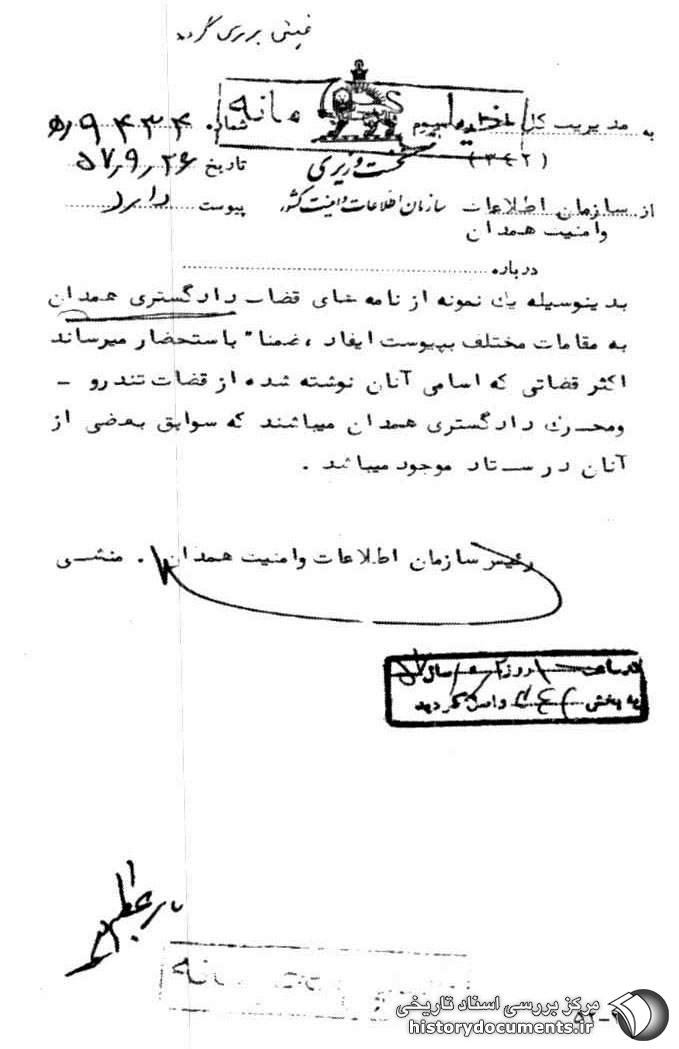 بررسی گردید
به مدیریت کل اداره سوم
(۳۴۲)
از سازمان اطلاعات
وامنیت همدان
خیلی محرمانه
نخست وزیری
سازمان اطلاعات و امنیت کشور
شماره ۹۴۳۴/ه‍
تاریخ ۵۷٫۹٫۲۶
پیوست دارد
درباره
بدینوسیله یک نمونه از نامه های قضات دادگستری همدان
به مقامات مختلف بپیوست ایفاد ، ضمنا" باستحضار میرساند
اکثر قضاتی که اسامی آنان نوشته شده از قضات تندرو -
ومحرک دادگستری همدان میباشند که سوابق بعضی از
آنان در ستاد موجود میباشد .
رئیس سازمان اطلاعات وامنیت همدان . منشی
در ساعت روز سال
به بخش ۳۴۲ واصل گردید
مرکز بررسی اسناد تاریخی
historydocuments.ir